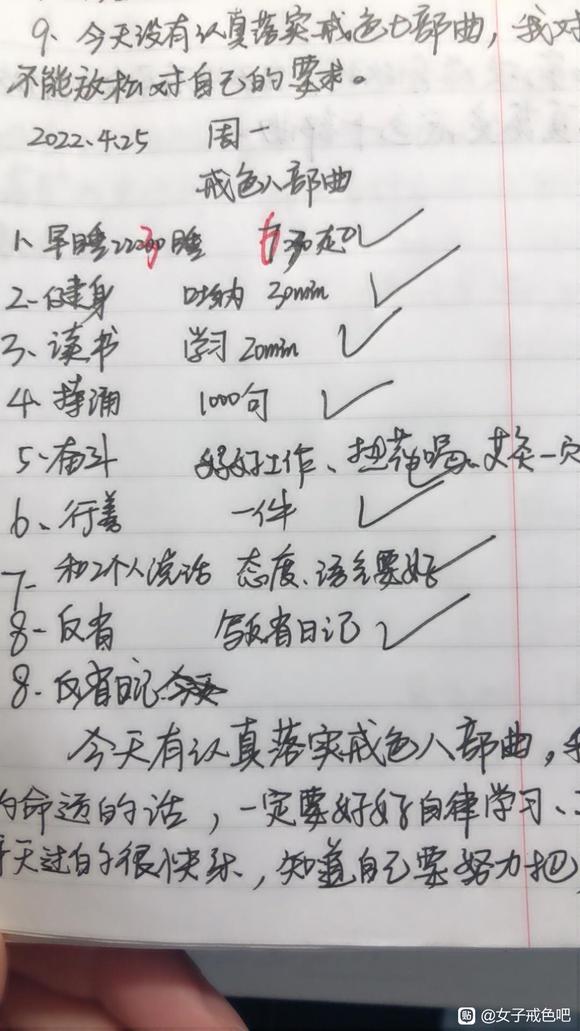 9、今天没有认真落实戒色七部曲，我对
不能放松对自己的要求。
2022.4.25 周一
戒色八部曲
1、早睡22:30睡 6:30起
2-健身 吐纳 30min
3、读书 学习 20min
4、持诵 1000句
5、奋斗 好好工作、艾灸一定
6、行善 一件
7- 和2个人说话 态度、语气要好
8-反省 写反省日记
8-反省日记
今天有认真落实戒色八部曲，我
的命运的话，一定要好好自律学习、
天过的很快乐，知道自己要努力把
贴 @女子戒色吧